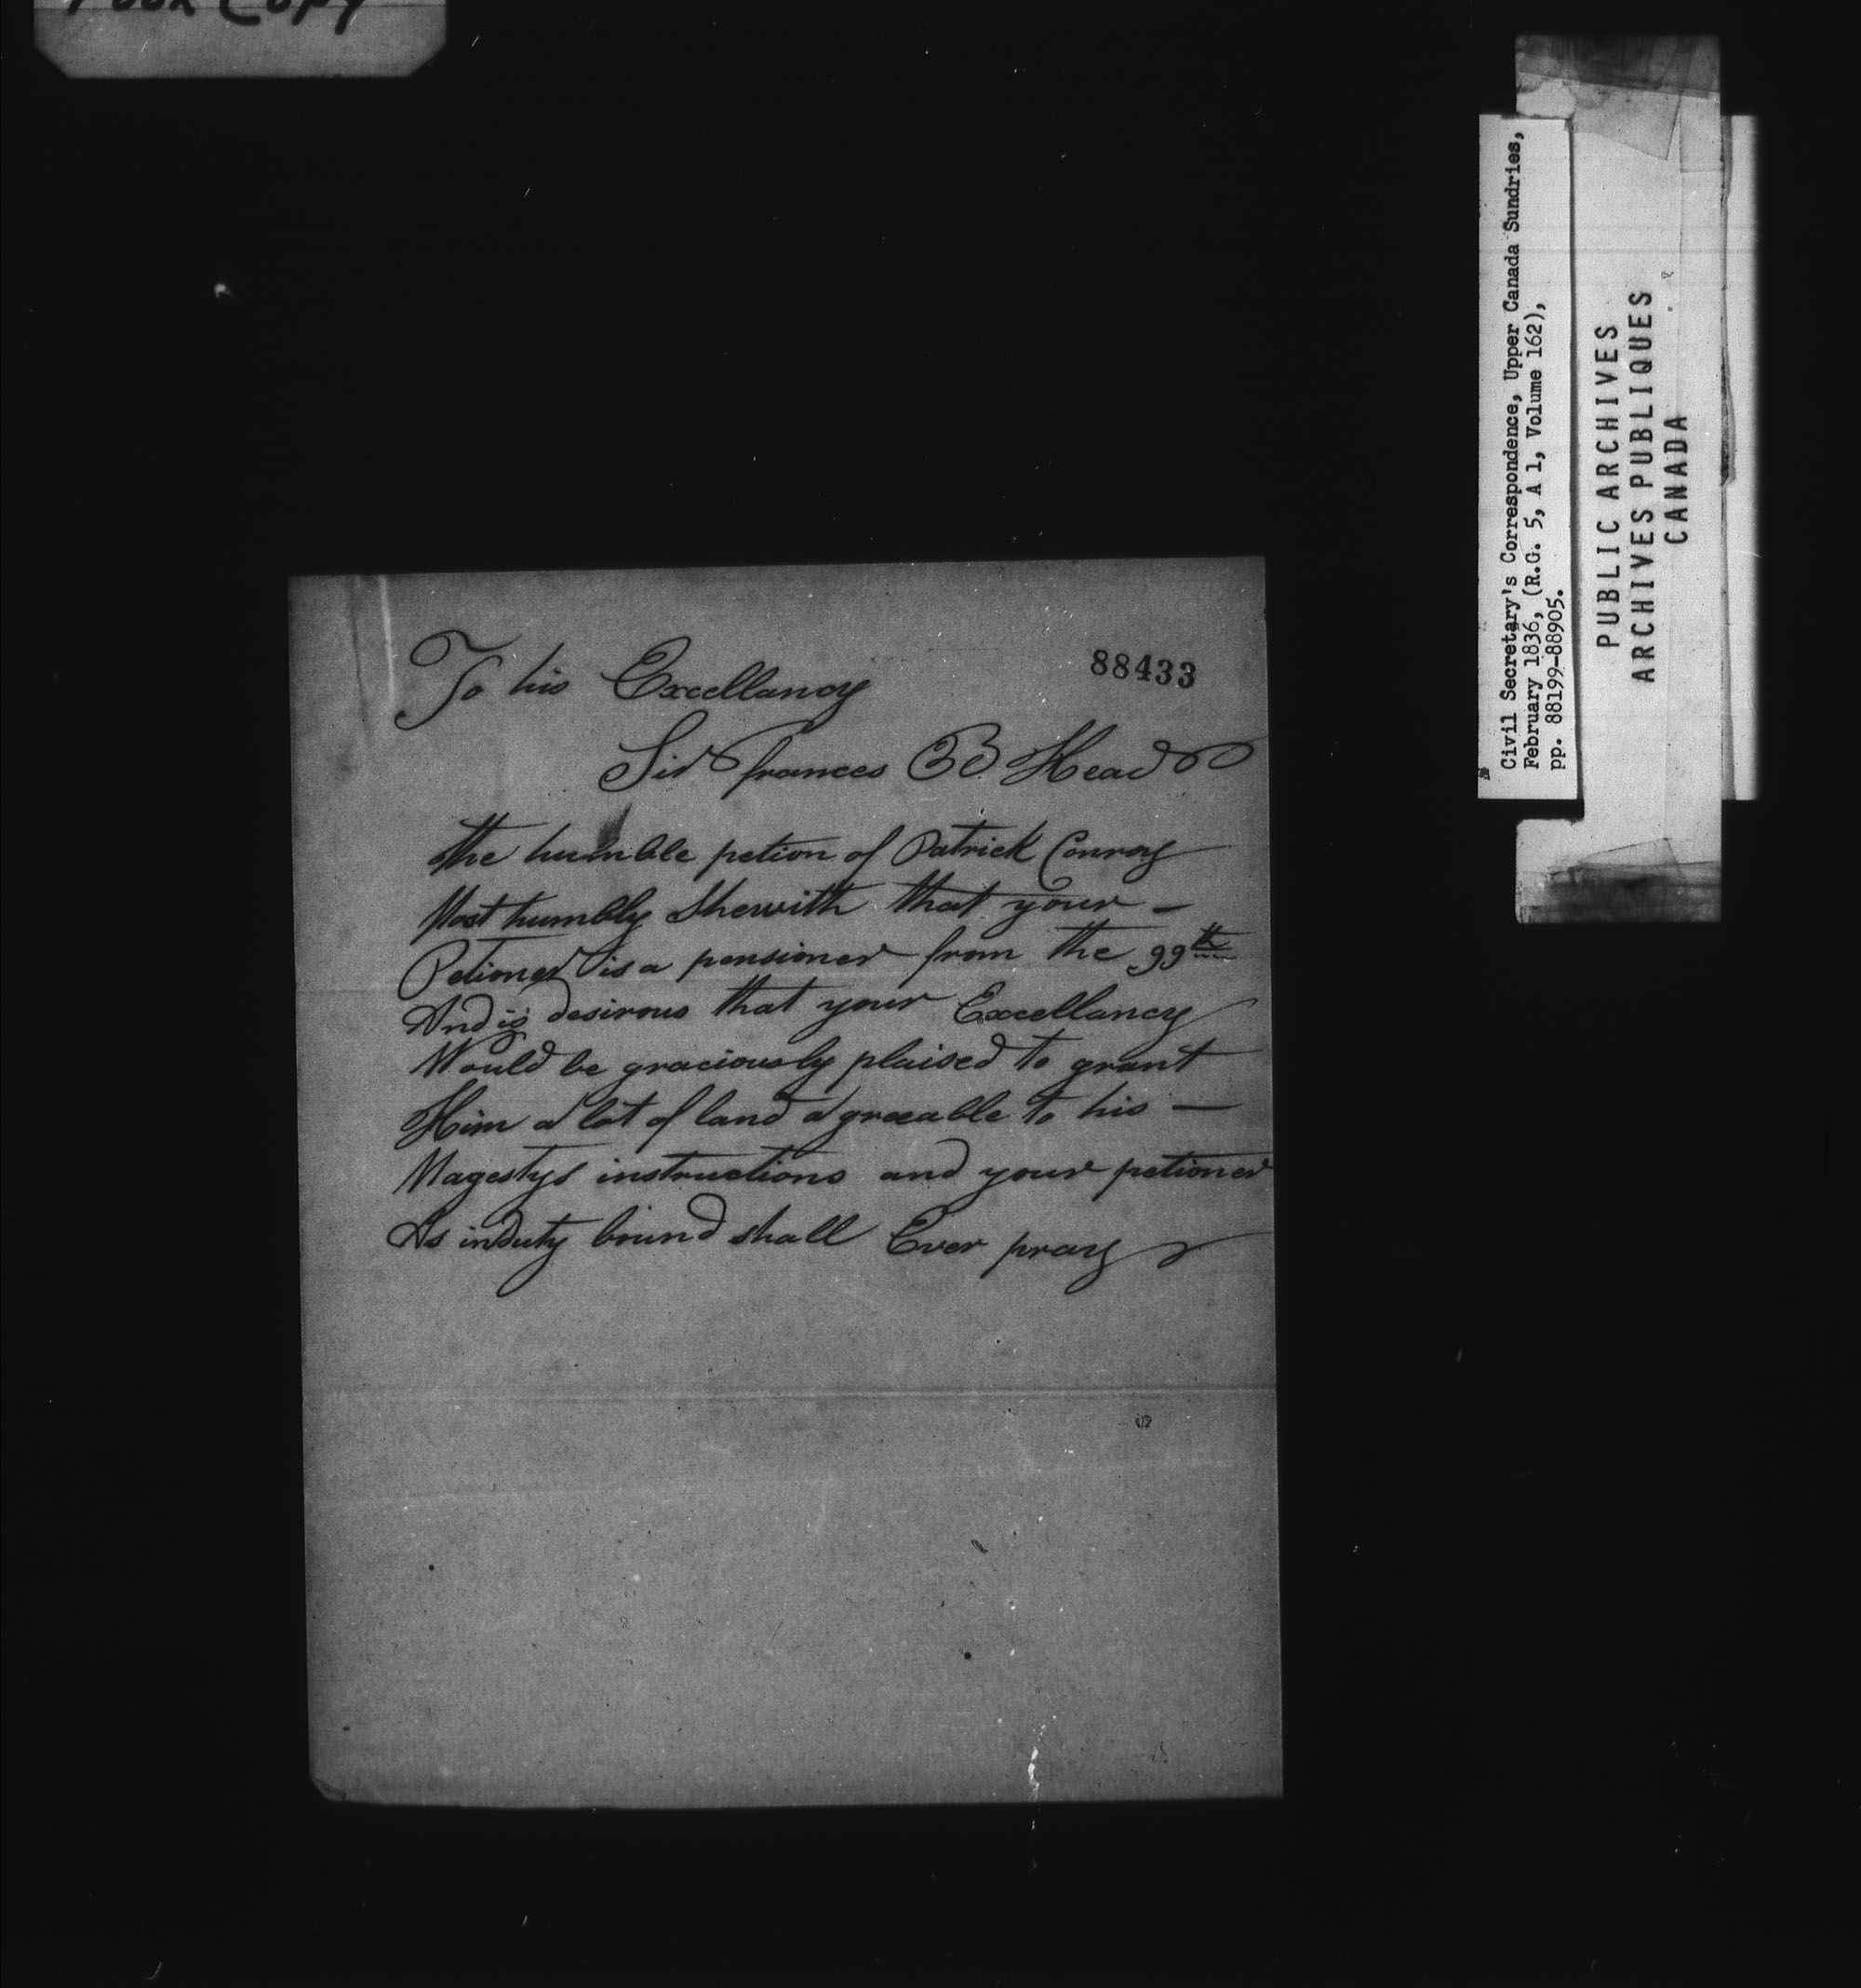 Poor Copy
88433
To his Excellancy
Sir frances B Head
the humble petion of Patrick Conroy
Most humbly Shewith that your –
Petioner is a pensioner from the 99th
And is desirous that your Excellancy
Would be graciously plaised to grant
Him a lot of land agreeable to his —
Magestys instructions and your petioner
As in duty bound shall Ever pray
Civil Secretary's Correspondence, Upper Canada Sundries,
February 1836, (R.G. 5, A 1, Volume 162),
pp. 88199-88905.
PUBLIC ARCHIVES
ARCHIVES PUBLIQUES
CANADA